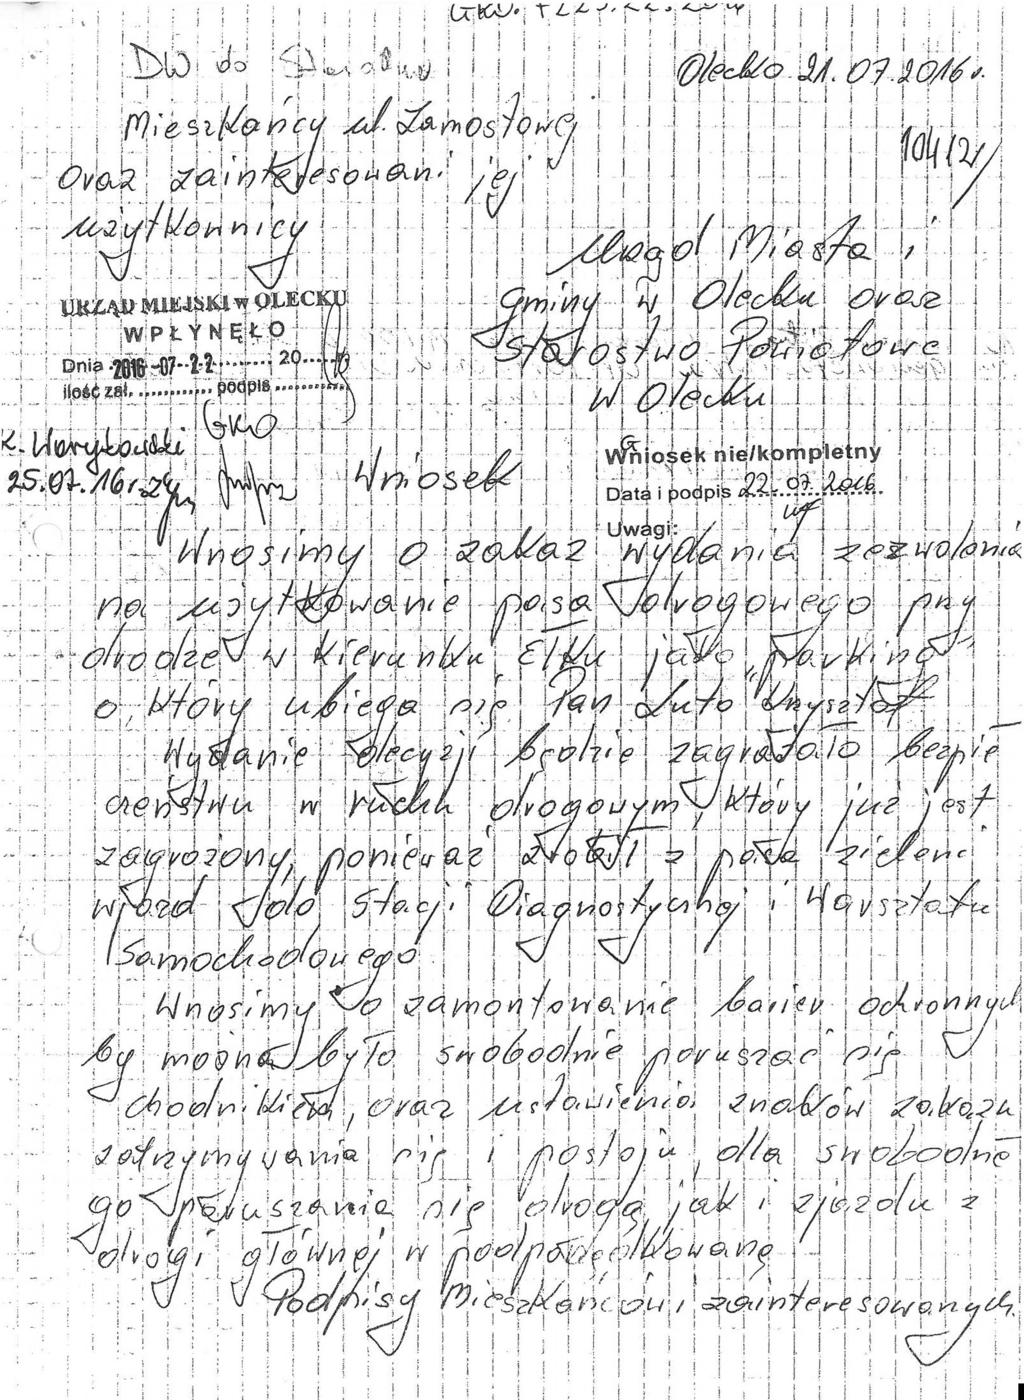 DW do
Olecko 21.07.2016 r.
Mieszkańcy ul. Zamostowej
10412/
oraz zainteresowani jej
użytkownicy
Urząd Miasta i
Gminy w Olecku oraz
Starostwo Powiatowe
w Olecku
URZĄD MIEJSKI w OLECKU
WPŁYNĘŁO
Dnia 2016 -07- 2 2 20
ilość zał. podpis
GKO
K. Warykowski
25.07.16r.
Wniosek
Wniosek nie/kompletny
Data i podpis 22.07.2016
Uwagi:
Wnosimy o zakaz wydania zezwolenia
na użytkowanie pasa drogowego przy
drodze w kierunku Ełku jako "parking"
o, który ubiega się Pan Luto Krzysztof
Wydanie decyzji będzie zagrażało bezpie
czeństwu w ruchu drogowym, który już jest
zagrożony, ponieważ zrobił z pasa zieleni
wjazd do Stacji Diagnostycznej i Warsztatu
Samochodowego.
Wnosimy o zamontowanie barier ochronnych
by można było swobodnie poruszać się
chodnikiem, oraz ustawienia znaków zakazu
zatrzymywania się i postoju, dla swobodne
go poruszania się drogą, jak i zjazdu z
drogi głównej w podporządkowaną
Podpisy Mieszkańców i zainteresowanych.